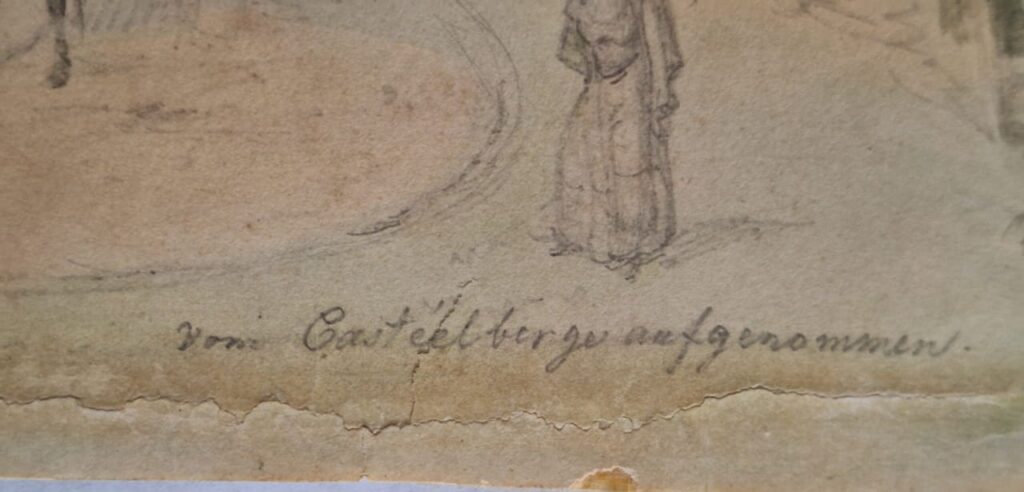 vom Casteelberge aufgenommen.